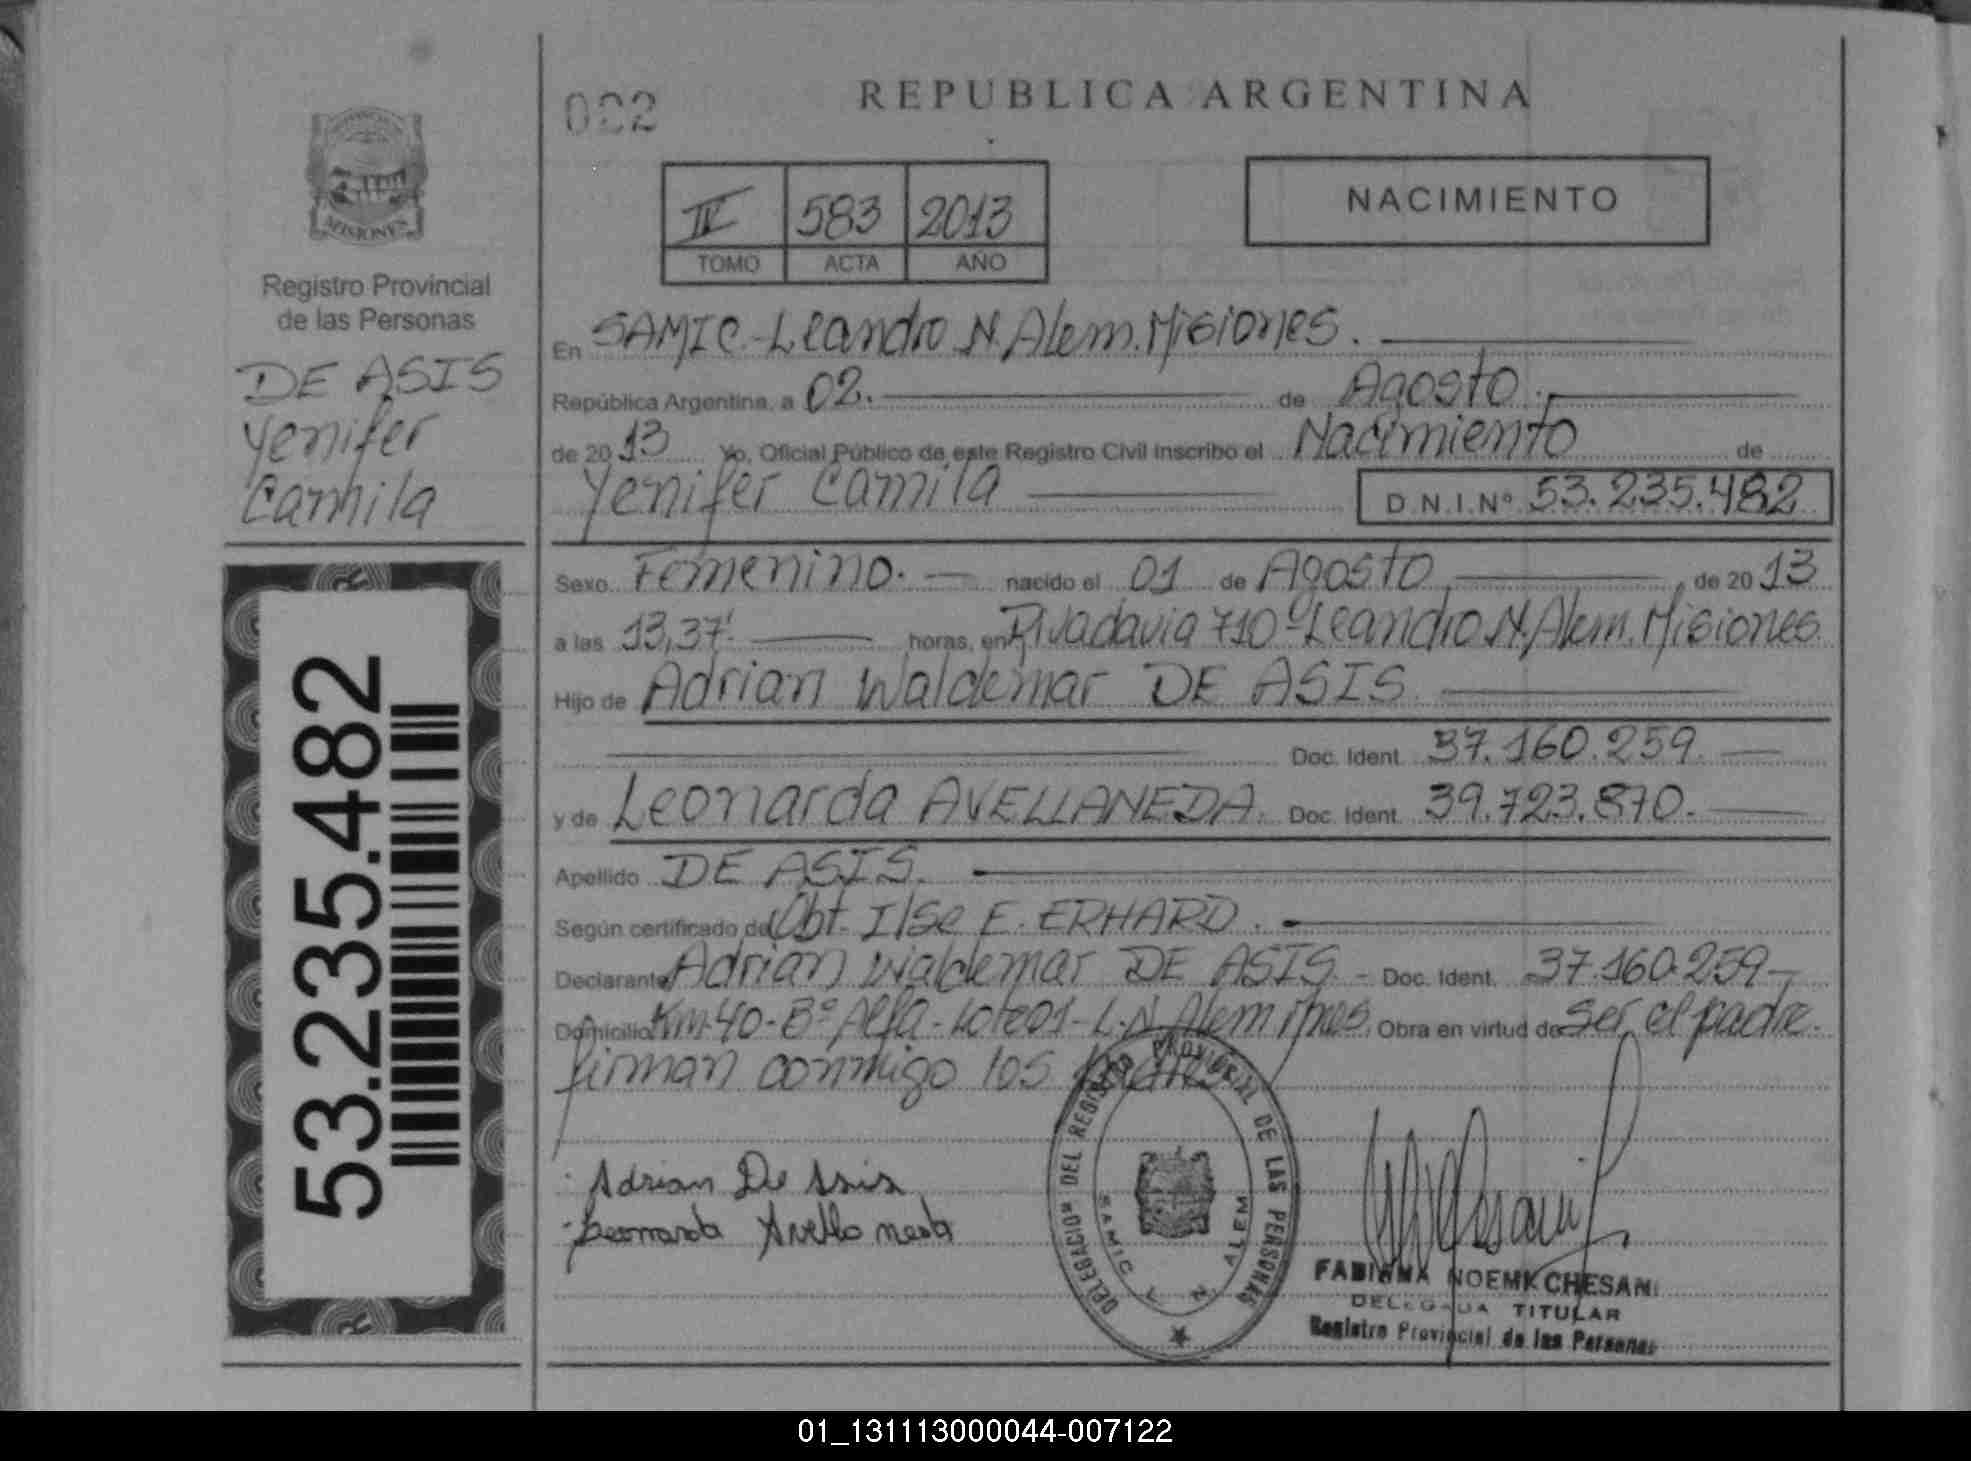 022
REPUBLICA ARGENTINA
IV 583 2013
TOMO ACTA AÑO
NACIMIENTO
MISIONES
Registro Provincial
de las Personas
DE ASIS
Yenifer
Camila
53.235.482
En SAMIC-Leandro N. Alem. Misiones.
República Argentina, a 02. de Agosto
de 2013 Yo, Oficial Público de este Registro Civil Inscribo el Nacimiento de
Yenifer Camila D.N.I.Nº 53.235.482
Sexo Femenino. nacido el 01 de Agosto, de 2013
a las 13,37' horas, en Rivadavia 710 Leandro N. Alem. Misiones
Hijo de Adrian Waldemar DE ASIS
Doc. Ident. 37.160.259.
y de Leonarda AVELLANEDA. Doc. Ident. 39.723.870.
Apellido DE ASIS.
Según certificado de Obt. Ilse E. ERHARD.
Declarante Adrian Waldemar DE ASIS. Doc. Ident. 37.160.259
Domicilio Km-40-Bº Alfa-Lote01-L.N. Alem Mnes. Obra en virtud de ser el padre.
firman conmigo los padres
Adrian De Asis
Leonarda Avellaneda
DELEGACION DEL REGISTRO PROVINCIAL DE LAS PERSONAS
SAMIC L N ALEM
FABIANA NOEMI CHESANI
DELEGADA TITULAR
Registro Provincial de las Personas
01_131113000044-007122